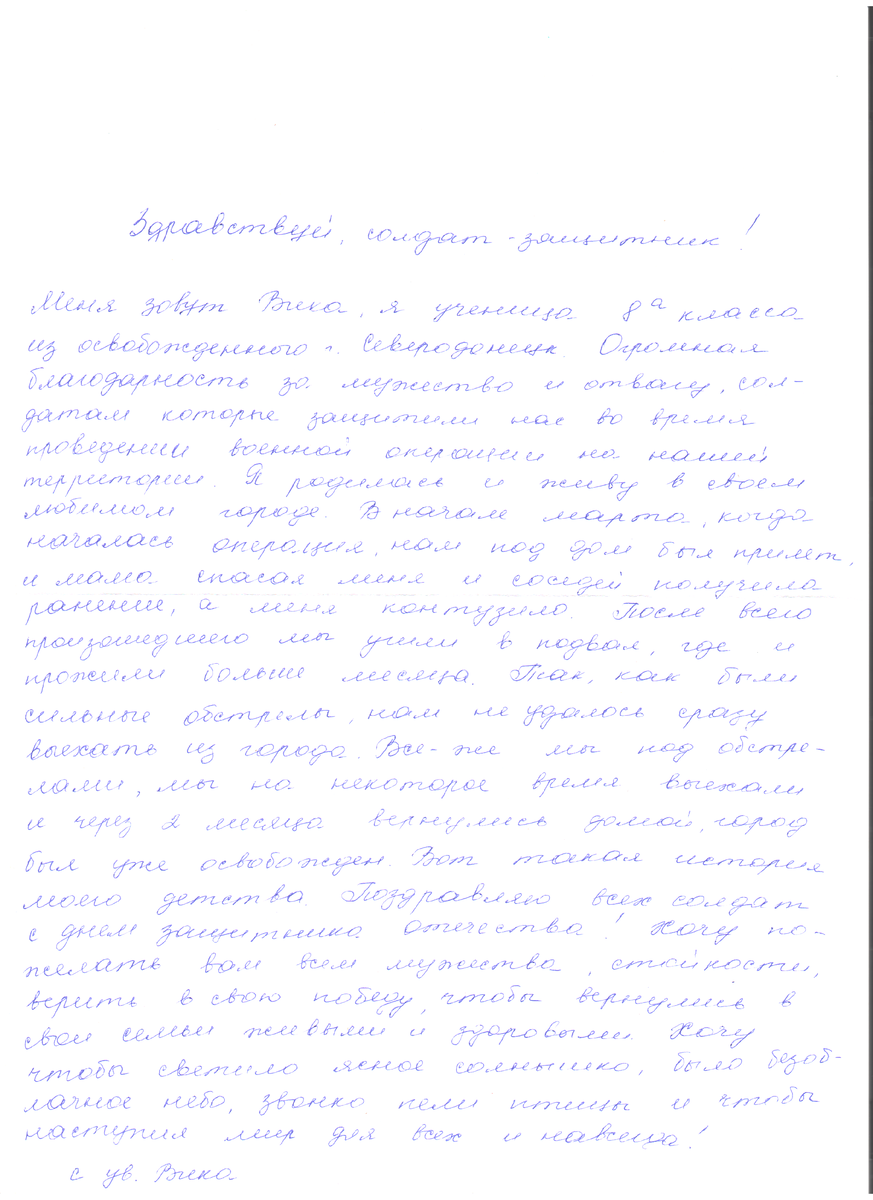 Здравствуй, солдат-защитник!
Меня зовут Вика, я ученица 8а класса
из освобожденного г. Северодонецк. Огромная
благодарность за мужество и отвагу, сол-
датам которые защитили нас во время
проведении военной операции на нашей
территории. Я родилась и живу в своем
любимом городе. В начале марта, когда
началась операция, нам под дом был прилет,
и мама спасая меня и соседей получила
ранение, а меня контузило. После всего
произошедшего мы ушли в подвал, где и
прожили больше месяца. Так, как были
сильные обстрелы, нам не удалось сразу
выехать из города. Все-же мы под обстре-
лами, мы на некоторое время выехали
и через 2 месяца вернулись домой, город
был уже освобожден. Вот такая история
моего детства. Поздравляю всех солдат
с днем защитника отечества! Хочу по-
желать вам всем мужества, стойкости,
верить в свою победу, чтобы вернулись в
свои семьи живыми и здоровыми. Хочу
чтобы светило ясное солнышко, было безоб-
лачное небо, звонко пели птицы и чтобы
наступил мир для всех и навсегда!
с ув. Вика